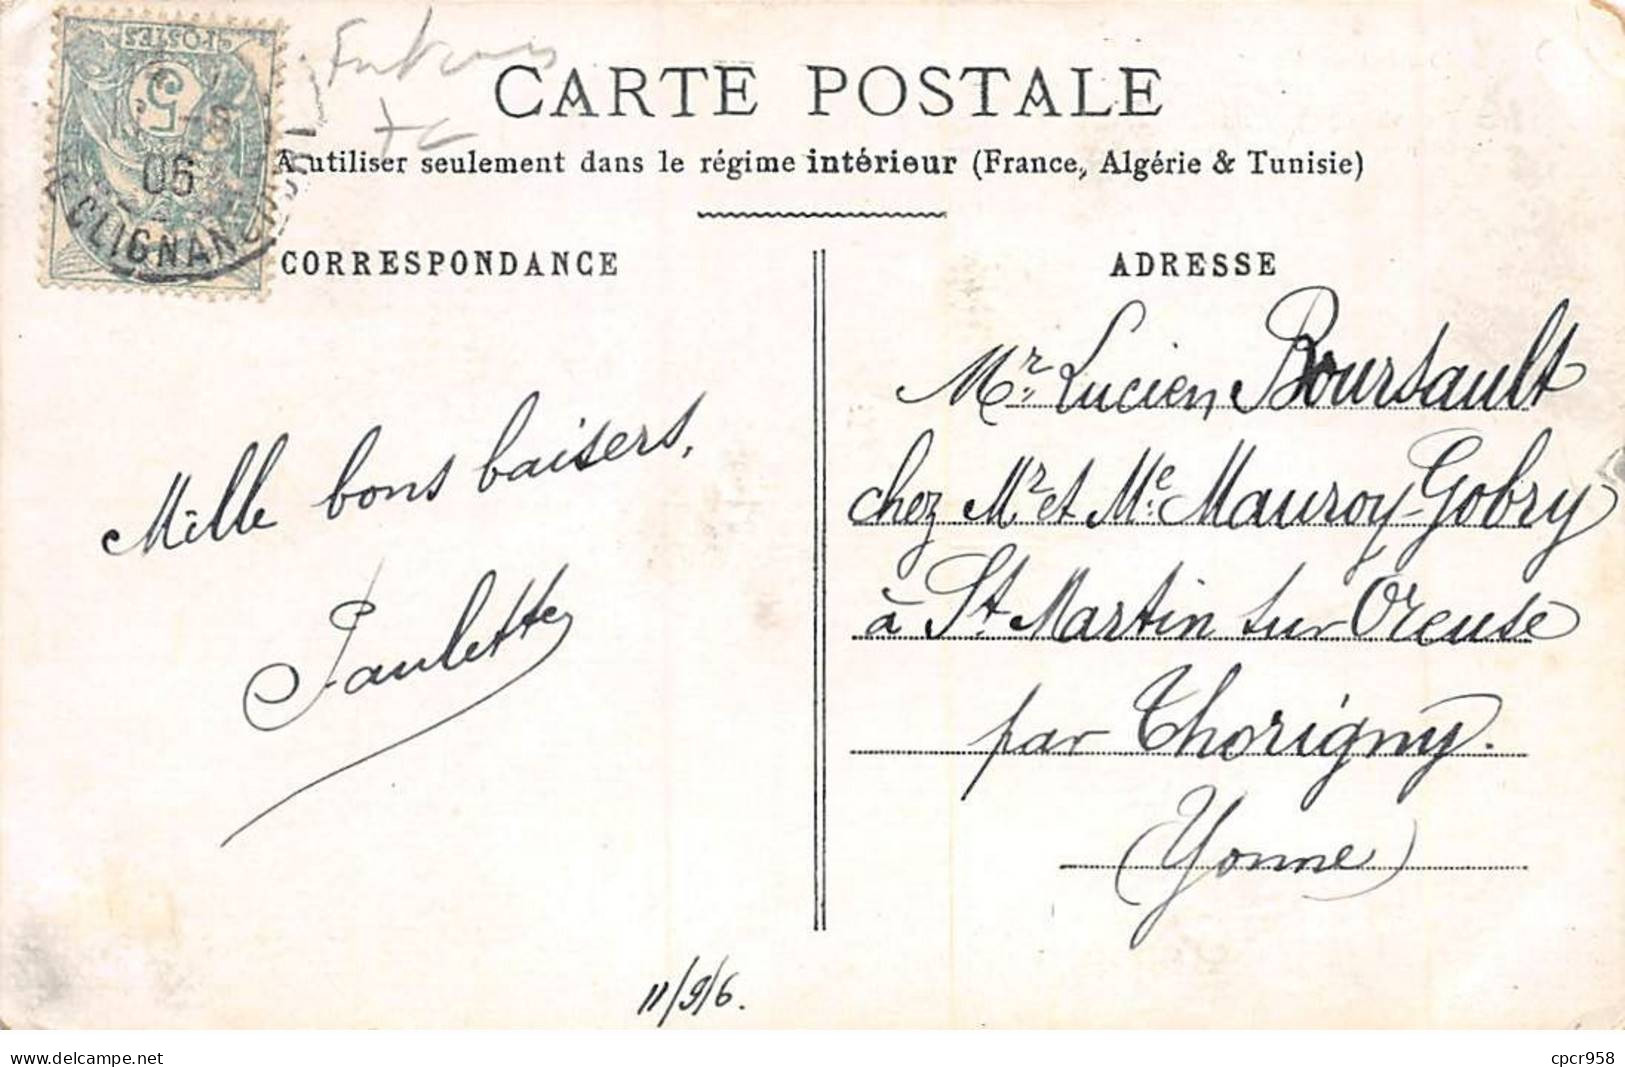 POSTES
5
06
CLIGNANC
CARTE POSTALE
A utiliser seulement dans le régime intérieur (France, Algérie & Tunisie)
CORRESPONDANCE
Mille bons baisers,
Paulette
11/9/6.
ADRESSE
Mr. Lucien Boursault
chez Mr et Me. Mauroy-Gobry
à St. Martin sur Oreuse
par Thorigny.
(Yonne)
www.delcampe.net
cpcr958